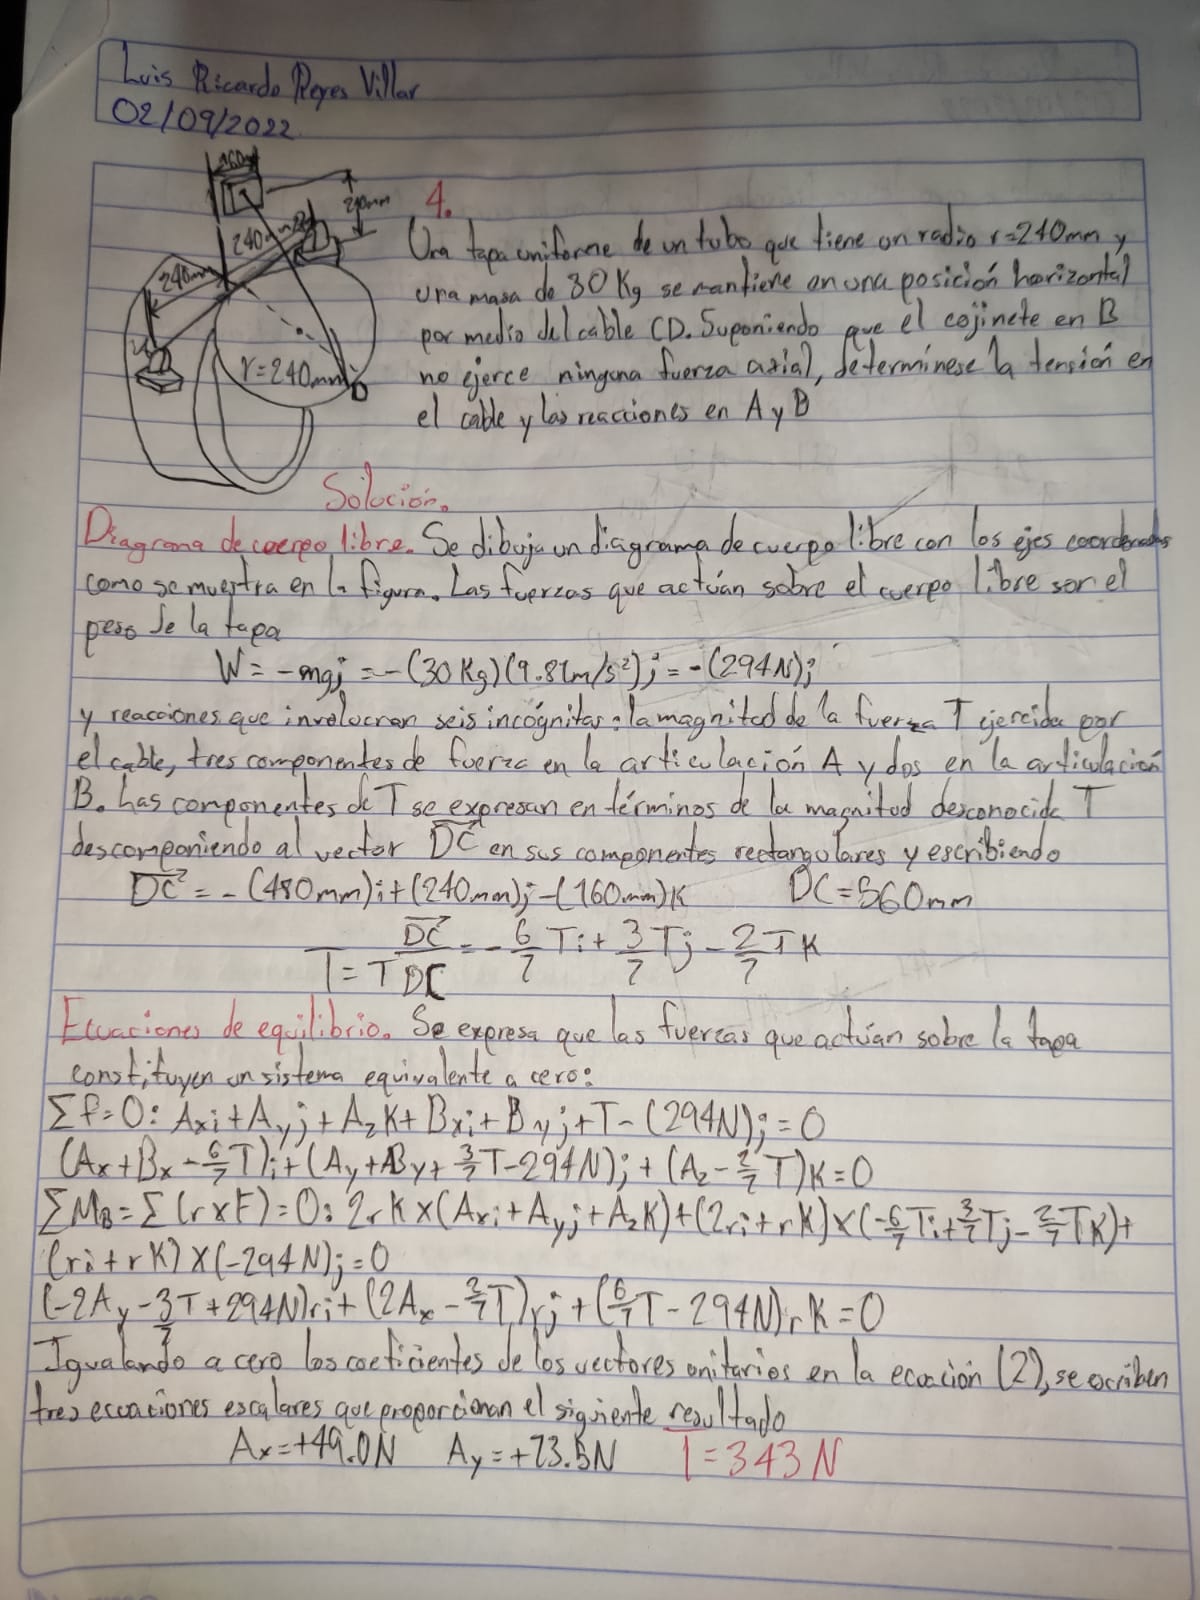 Luis Ricardo Reyes Villar
02/09/2022
160mm
240mm
240mm
240mm
r=240mm
D
4.
Una tapa uniforme de un tubo que tiene un radio r=240mm y
una masa de 30 Kg se mantiene en una posición horizontal
por medio del cable CD. Suponiendo que el cojinete en B
no ejerce ninguna fuerza axial, determínese la tensión en
el cable y las reacciones en A y B
Solución.
Diagrama de cuerpo libre. Se dibuja un diagrama de cuerpo libre con los ejes coordenados
como se muestra en la figura. Las fuerzas que actúan sobre el cuerpo libre son el
peso de la tapa
W = -mgj = -(30 Kg)(9.81m/s²)j = -(294N)j
y reacciones que involucran seis incógnitas: la magnitud de la fuerza T ejercida por
el cable, tres componentes de fuerza en la articulación A y dos en la articulación
B. Las componentes de T se expresan en términos de la magnitud desconocida T
descomponiendo al vector DC en sus componentes rectangulares y escribiendo
DC = -(480mm)i+(240mm)j-(160mm)K DC=560mm
T = T DC/DC = -6/7 Ti + 3/7 Tj - 2/7 TK
Ecuaciones de equilibrio. Se expresa que las fuerzas que actúan sobre la tapa
constituyen un sistema equivalente a cero:
∑F=0: Axi+Ayj+AzK+Bxi+Byj+T-(294N)j=0
(Ax+Bx-6/7T)i+(Ay+By+3/7T-294N)j+(Az-2/7T)K=0
∑MB=∑(rxF)=0: 2rKx(Axi+Ayj+AzK)+(2ri+rK)x(-6/7Ti+3/7Tj-2/7TK)+
(ri+rK)x(-294N)j=0
(-2Ay-3/7T+294N)ri+(2Ax-2/7T)rj+(6/7T-294N)rK=0
Igualando a cero los coeficientes de los vectores unitarios en la ecuación (2), se escriben
tres ecuaciones escalares que proporcionan el siguiente resultado
Ax=+49.0N Ay=+73.5N T=343N